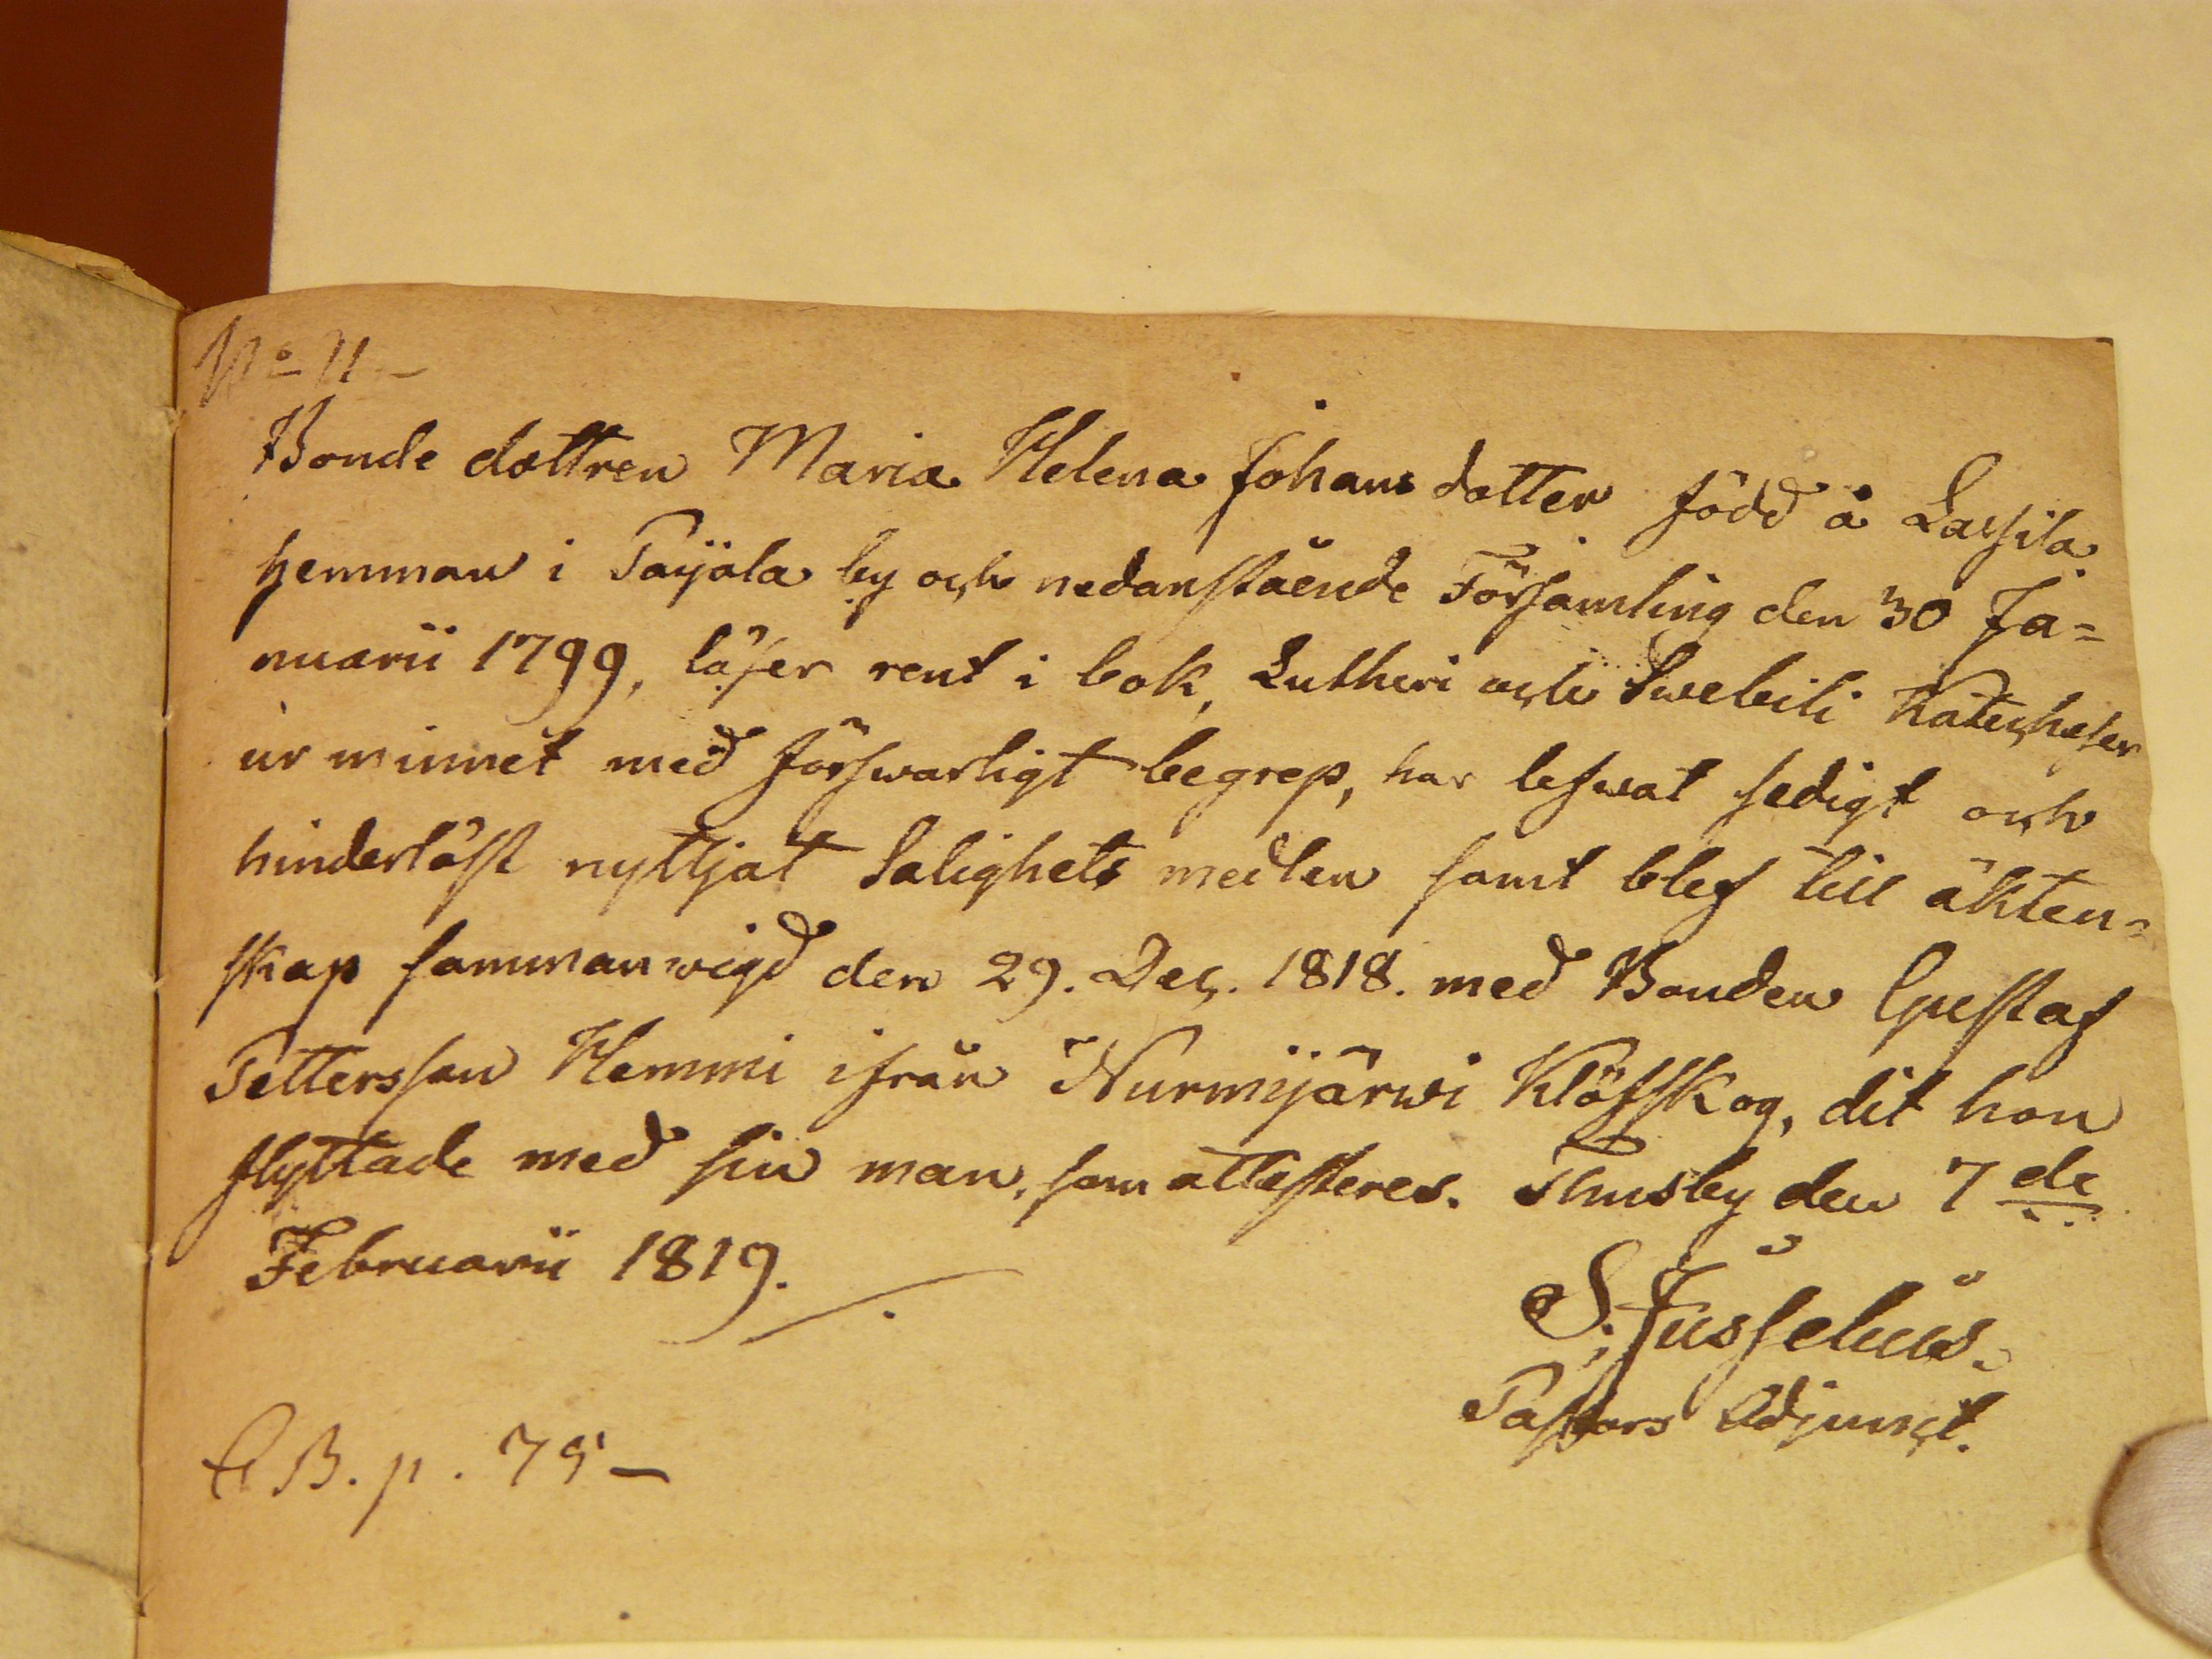 No 11 –
Bonde dottren Maria Helena Johans dotter född å Lassila
hemman i Paijala by och nedanstående Församling den 30 Ja=
nuarii 1799, läser rent i bok, Lutheri och Swebilii Katecheser
ur minnet med förswarligt begrep, har lefwat sedigt och
hinderlöst nyttjat Salighets medlen samt blef till äkten=
skap sammanwigd den 29. Dec. 1818. med Bonden Gustaf
Pettersson Hemmi ifrån Nurmijärwi Klöfskog, dit hon
flyttade med sin man, som attesteres. Thusby den 7 de
Februarii 1819.
S. Jusselius.
Pastors Adjunct.
C B. p. 75 –